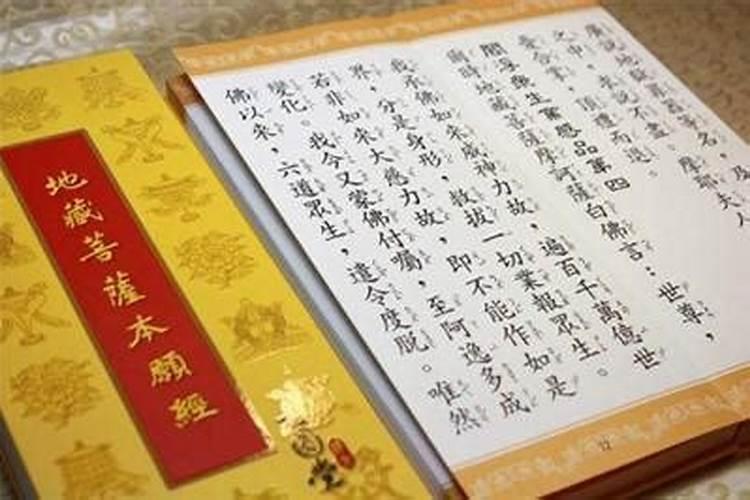 地藏菩薩本願經
廣說地獄罪器等名，及
之中，求說不盡。摩耶夫人
愁憂合掌，頂禮而退。
閻浮眾生業感品第四
爾時地藏菩薩摩訶薩白佛言：世尊，
我承佛如來威神力故，遍百千萬億世
界，分是身形，救拔一切業報眾生。
若非如來大慈力故，即不能作如是
變化。我今又蒙佛付囑，至阿逸多成
佛以來，六道眾生，遣令度脫。唯然
12